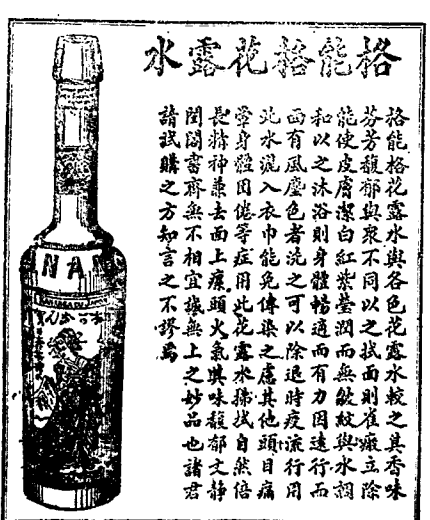 水露花格能格
格能格花露水與各色花露水較之其香味
芬芳馥郁與衆不同以之拭面則雀癍立除
能使皮膚潔白紅紫瑩潤而無皺紋與水調
和以之沐浴則身體暢適而有力因遠行而
面有風塵色者洗之可以除退時疫流行用
此水灑入衣巾能免傳染之慮其他頭目痛
學身體困倦等症用此花露水拂拭自然倍
長精神兼去面上瘰頭火氣與味馥郁文静
閨閣書齋無不相宜誠無上之妙品也諸君
請試購之方知言之不謬焉
NAN